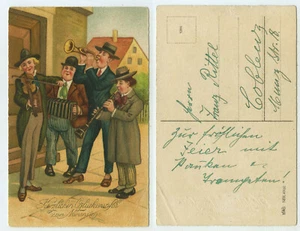 Herzlichen Glückwunsch
zum Namenstage
Herrn
Franz Rittel
Coblenz
Zur fröhlichen
Feier mit
Pauken u.
Trompeten!